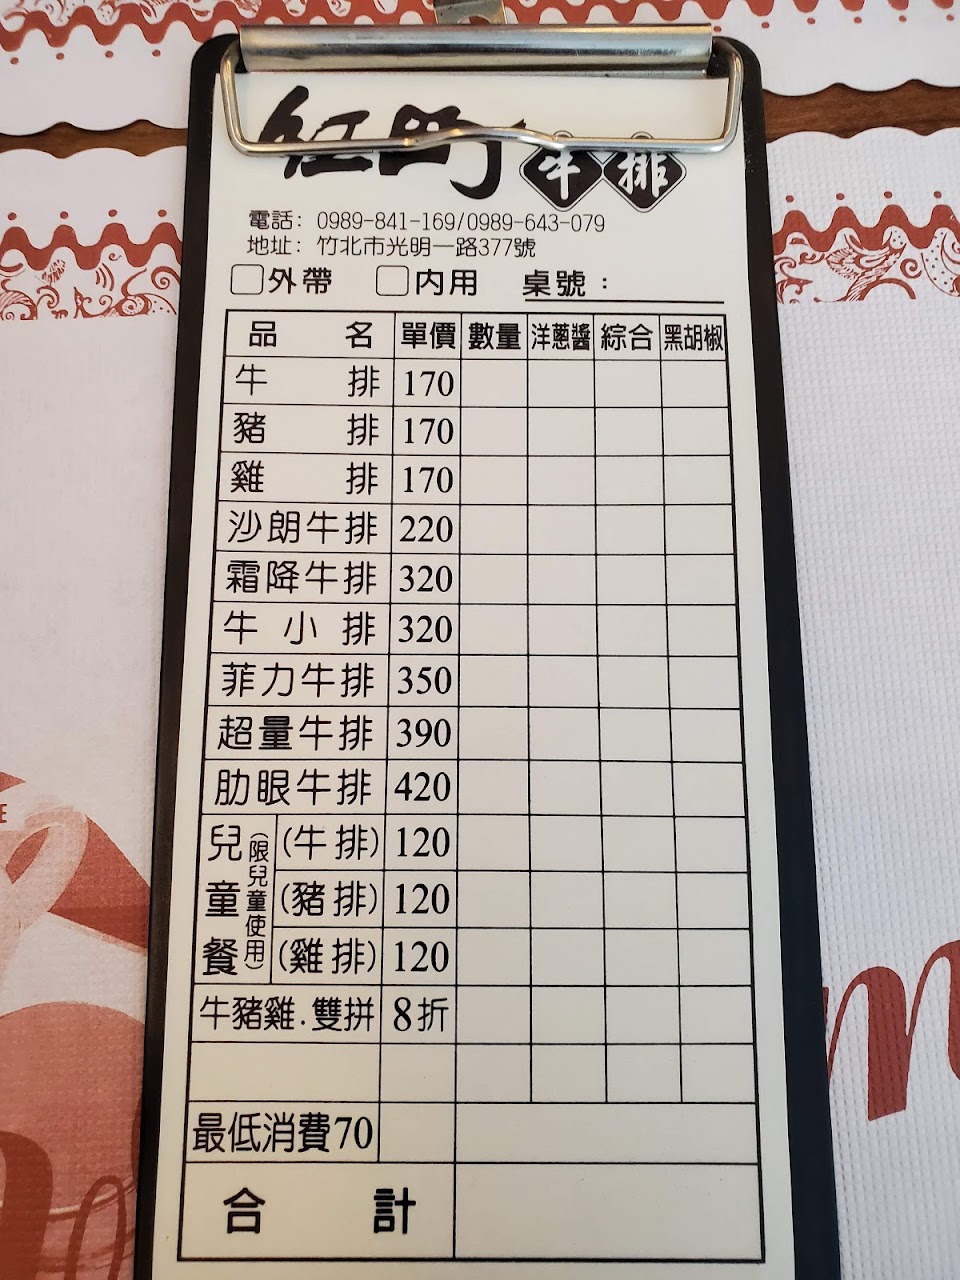 紅町牛排
電話: 0989-841-169/0989-643-079
地址: 竹北市光明一路377號
外帶 內用 桌號:
品名 單價 數量 洋蔥醬 綜合 黑胡椒
牛排 170
豬排 170
雞排 170
沙朗牛排 220
霜降牛排 320
牛小排 320
菲力牛排 350
超量牛排 390
肋眼牛排 420
兒童餐(限兒童使用)
(牛排) 120
(豬排) 120
(雞排) 120
牛豬雞.雙拼 8折
最低消費70
合計